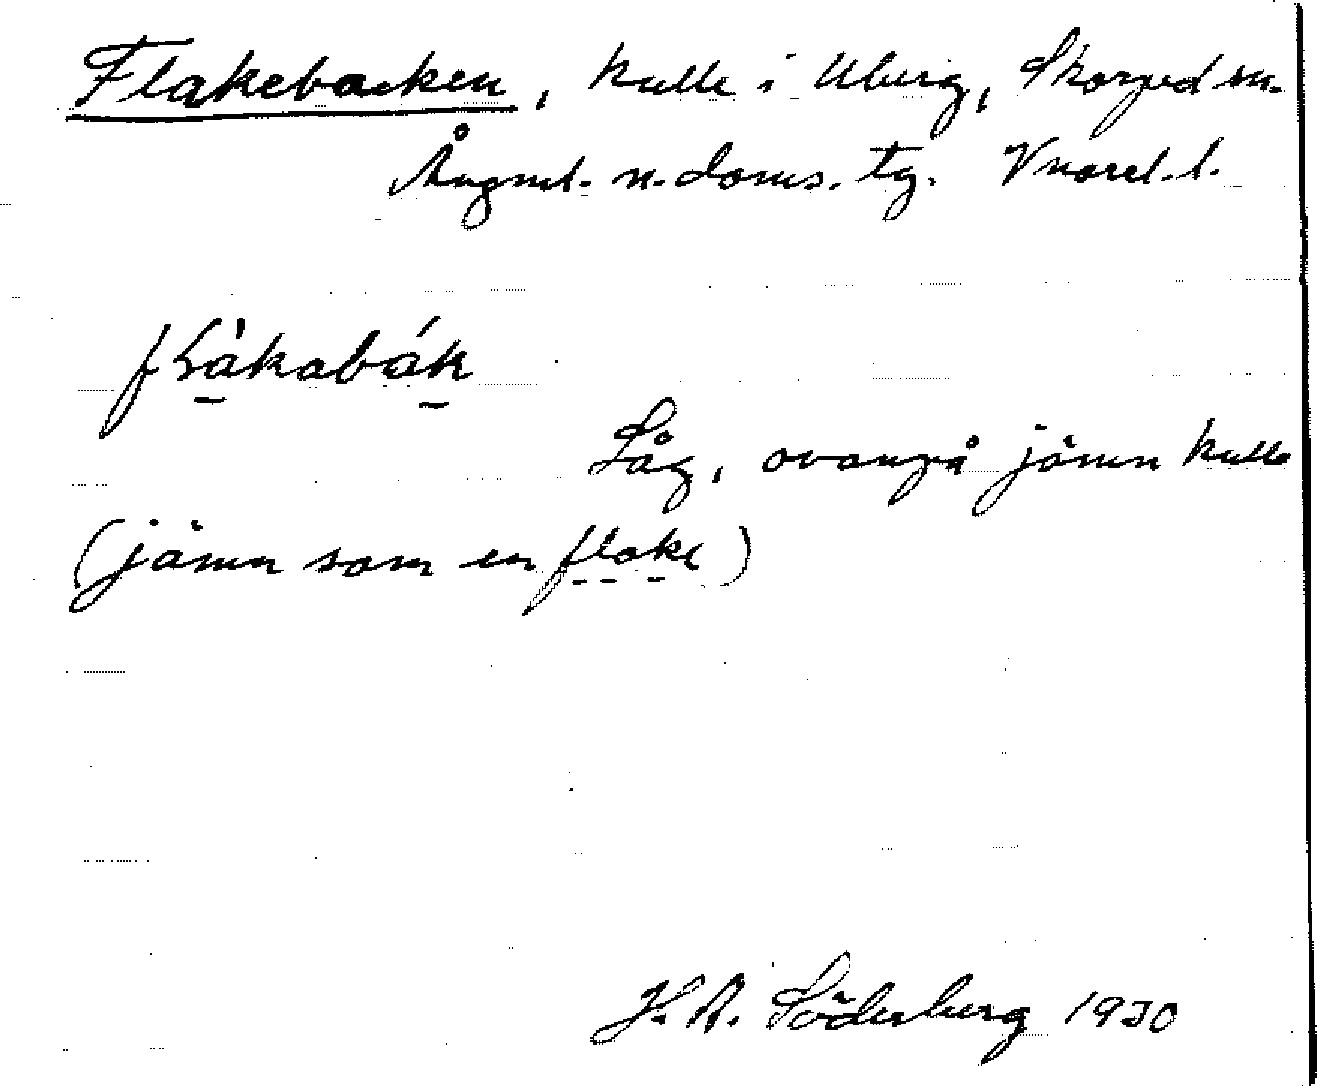 Flakebacken, kulle i Uberg, Skorped sn.
Ångml. n. doms. tg. Vnorrl. l.
Låg, ovanpå jämn kulle
(jämn som en flake)
H. A. Söderberg 1930